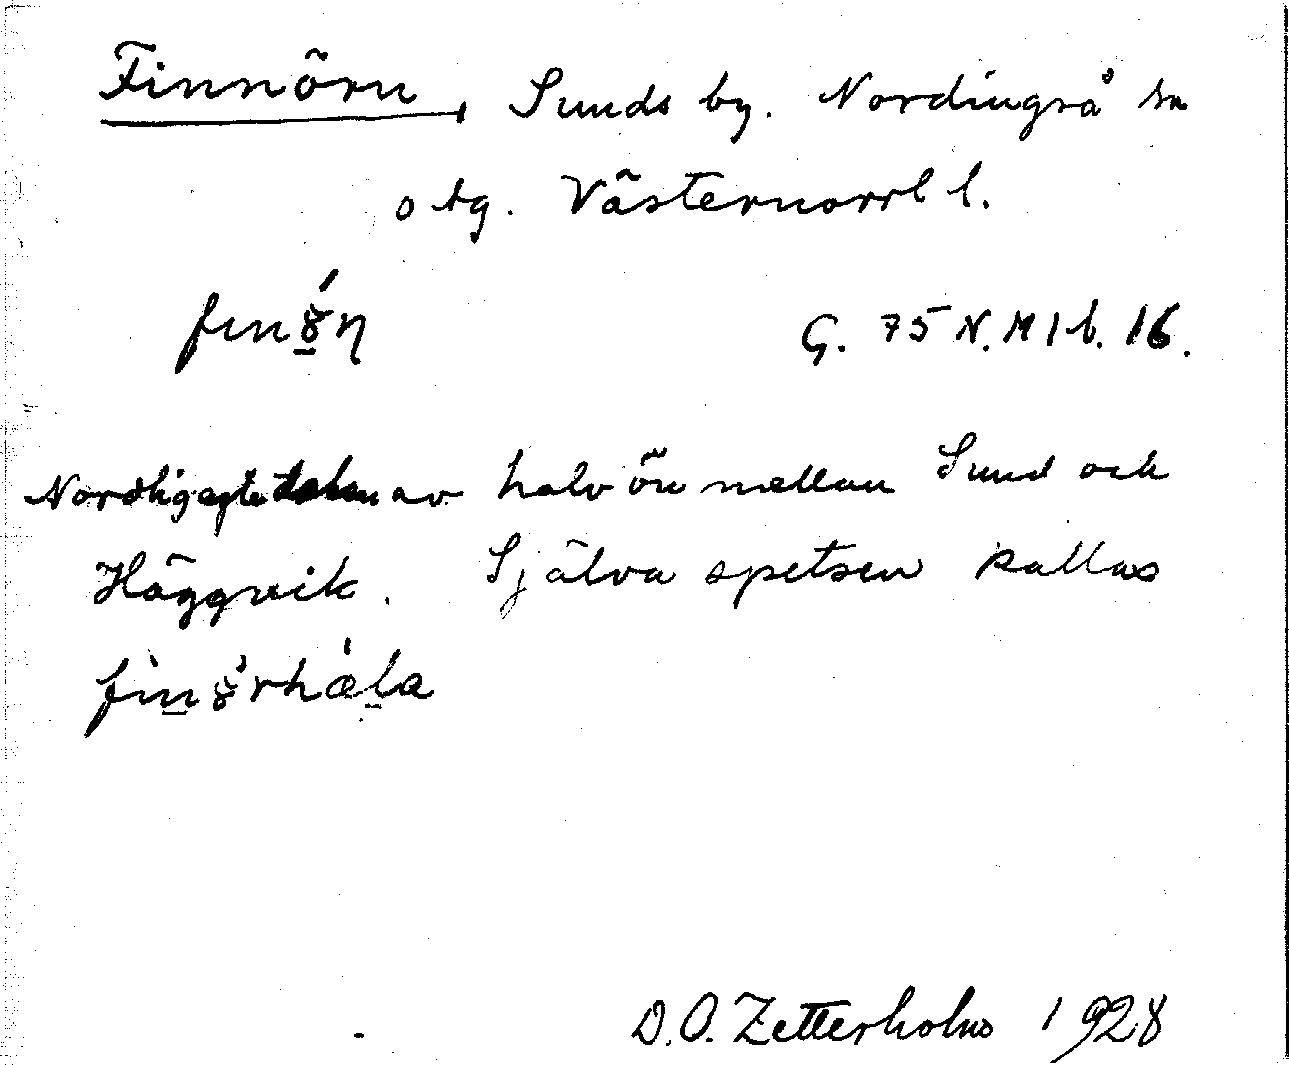 Finnörn, Sunds by. Nordingrå sn
o tg. Västernorrl l.
finȣ́n G. 75 N. M 1 b. 16.
Nordligaste delen av halvön mellan Sund och
Häggvik. Själva spetsen kallas
finȣrhæla
D. O. Zetterholm 1928